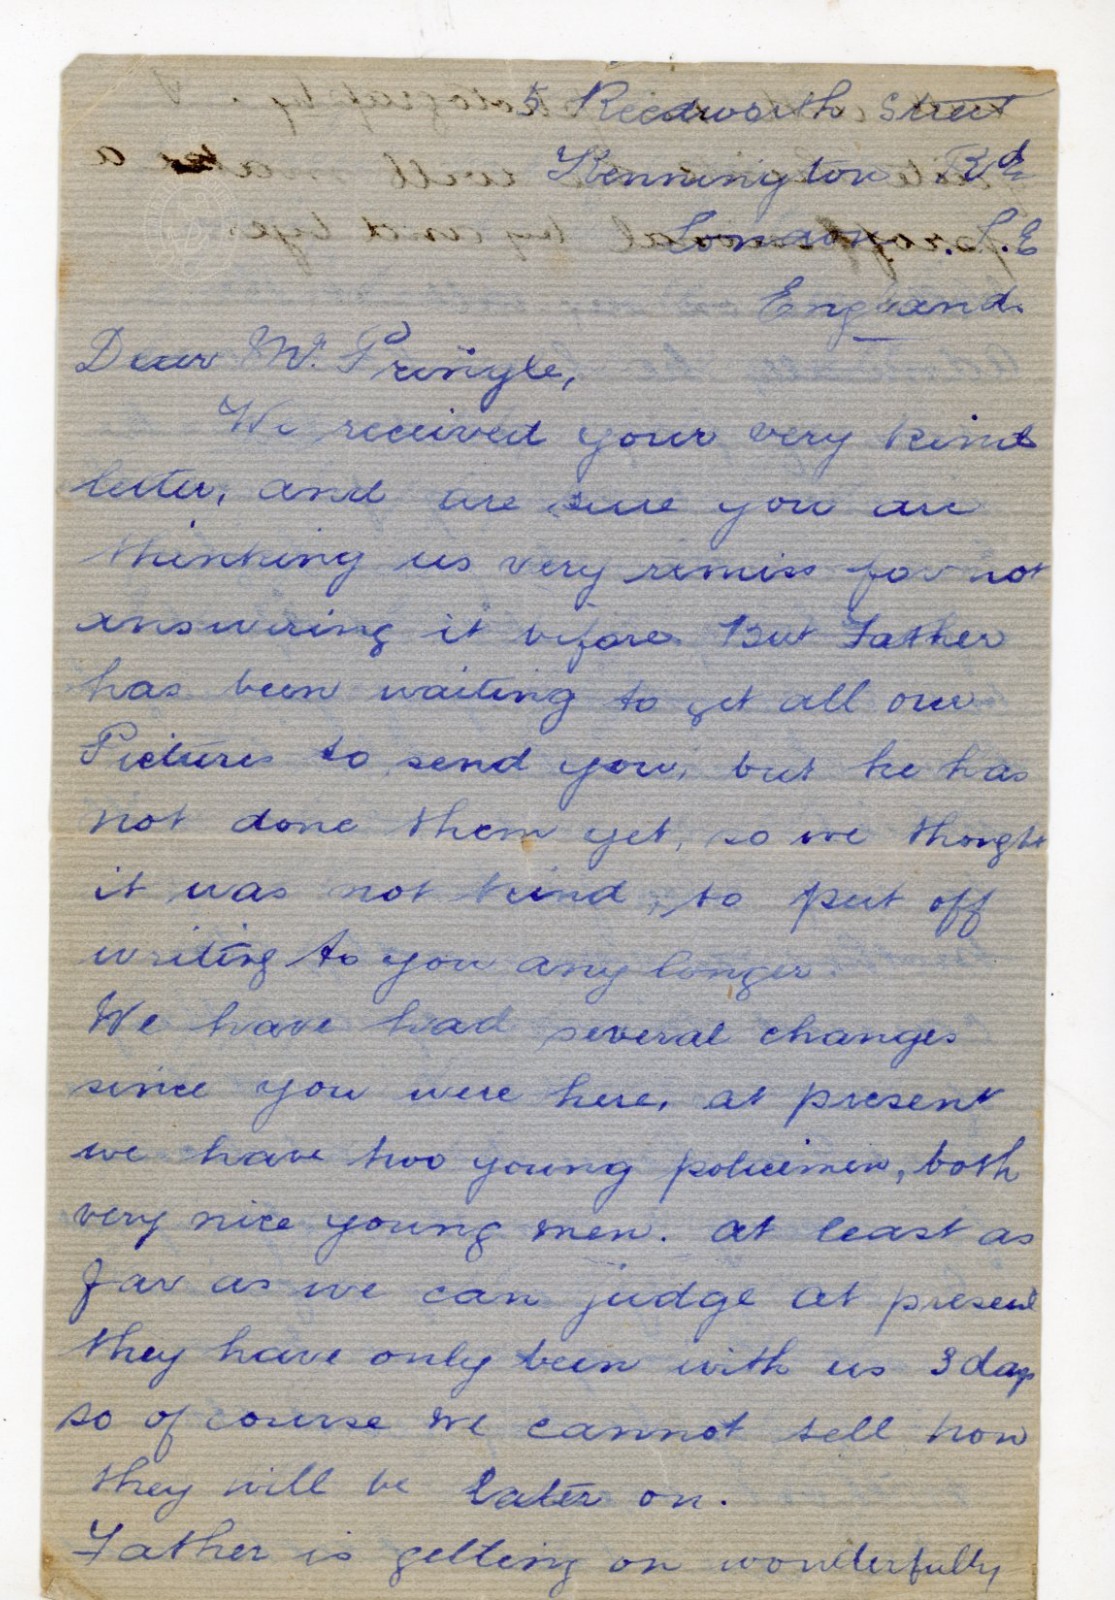 5 Reedworth Street
Kennington Rd
London. S.E
England.
Dear Mr. Pringle,
We received your very kind
letter, and are sure you are
thinking us very remiss for not
answering it before. But Father
has been waiting to get all our
Pictures to send you, but he has
not done them yet, so we thought
it was not kind, to put off
writing to you any longer.
We have had several changes
since you were here, at present
we have two young policemen, both
very nice young men. at least as
far as we can judge at present
they have only been with us 3 days
so of course we cannot tell how
they will be later on.
Father is getting on wonderfully